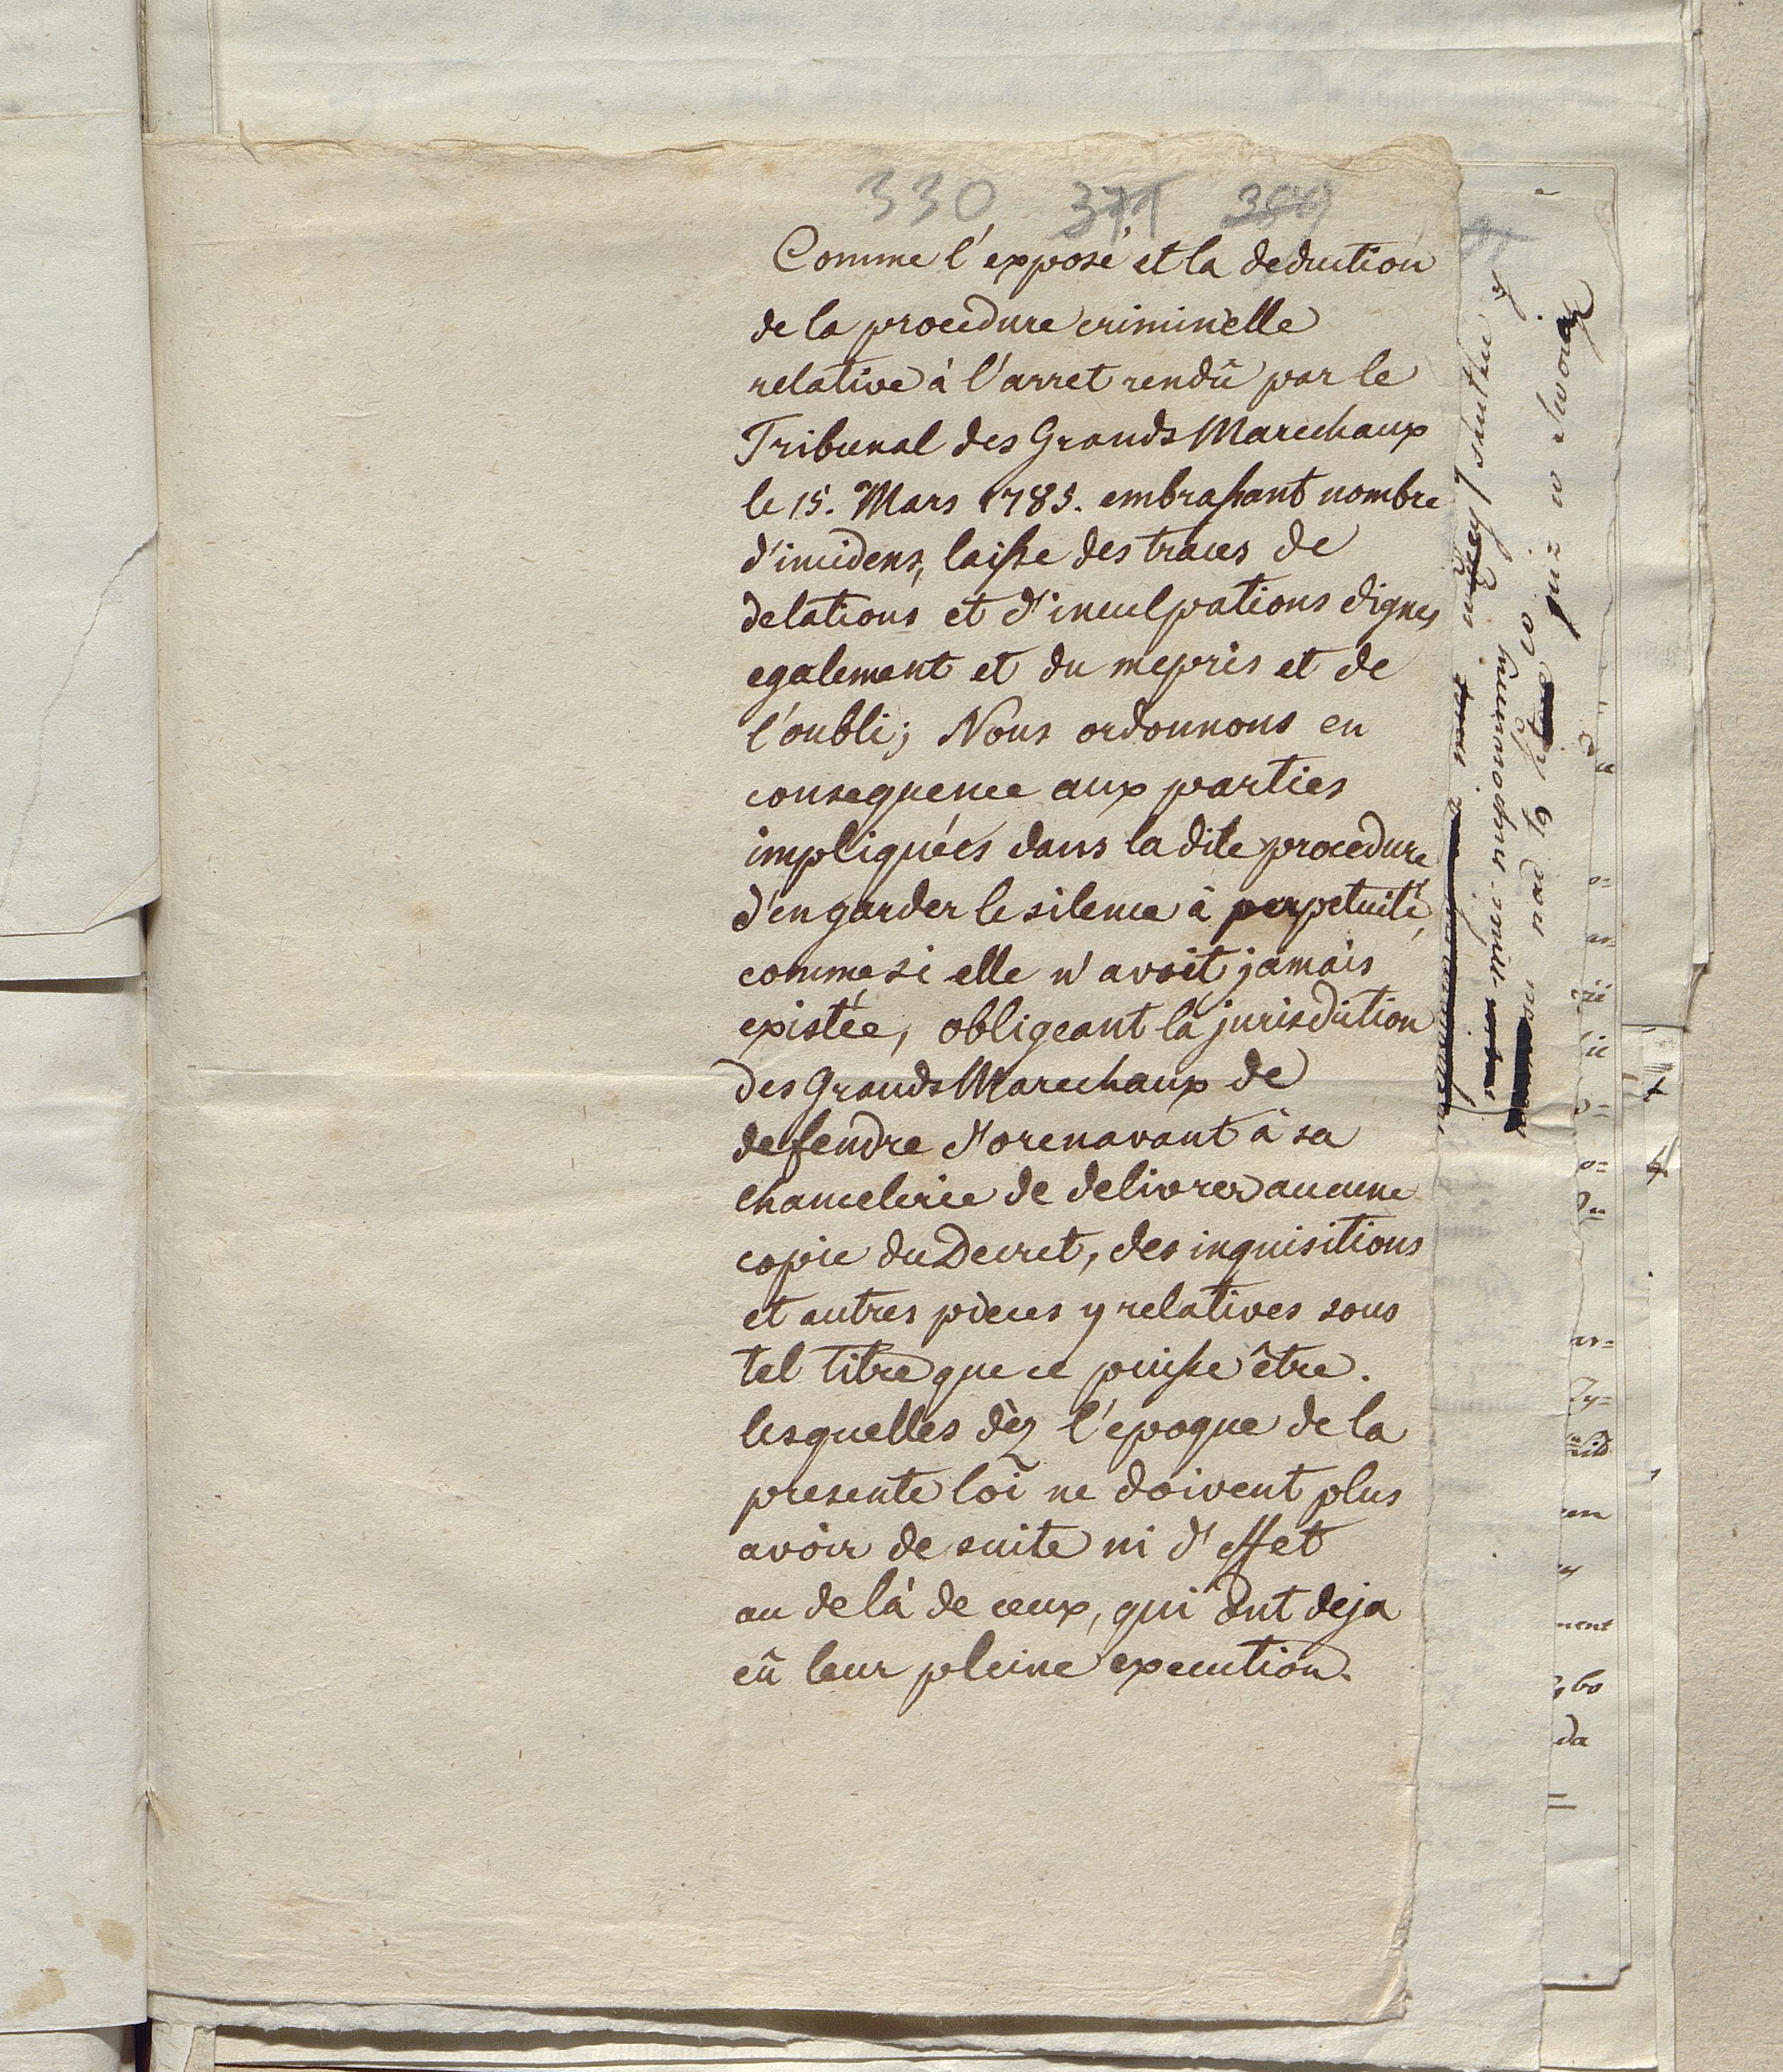 330 371 399
Comme l'exposé et la deduction
de la procedure criminelle
relative à l'arret rendû par le
Tribunal des Grands Marechaux
le 15. Mars 1785. embraſsant nombre
d'incidens, laiſse des traces de
delations et d'inculpations dignes
egalement et du mepris et de
l'oubli; Nous ordonnons en
consequence aux parties
impliquées dans la dite procedure
d'en garder le silence à perpetuité,
comme si elle n'avoit jamais
existée, obligeant la jurisdiction
des Grands Marechaux de
defendre d'orenavant à sa
chancelerie de delivrer aucune
copie du Decret, des inquisitions
et autres pieces y relatives sous
tel titre que ce puiſse être.
lesquelles dèz l'epoque de la
presente loi ne doivent plus
avoir de suite ni d'effet
au delà de ceux, qui ont deja
eû leur pleine execution.